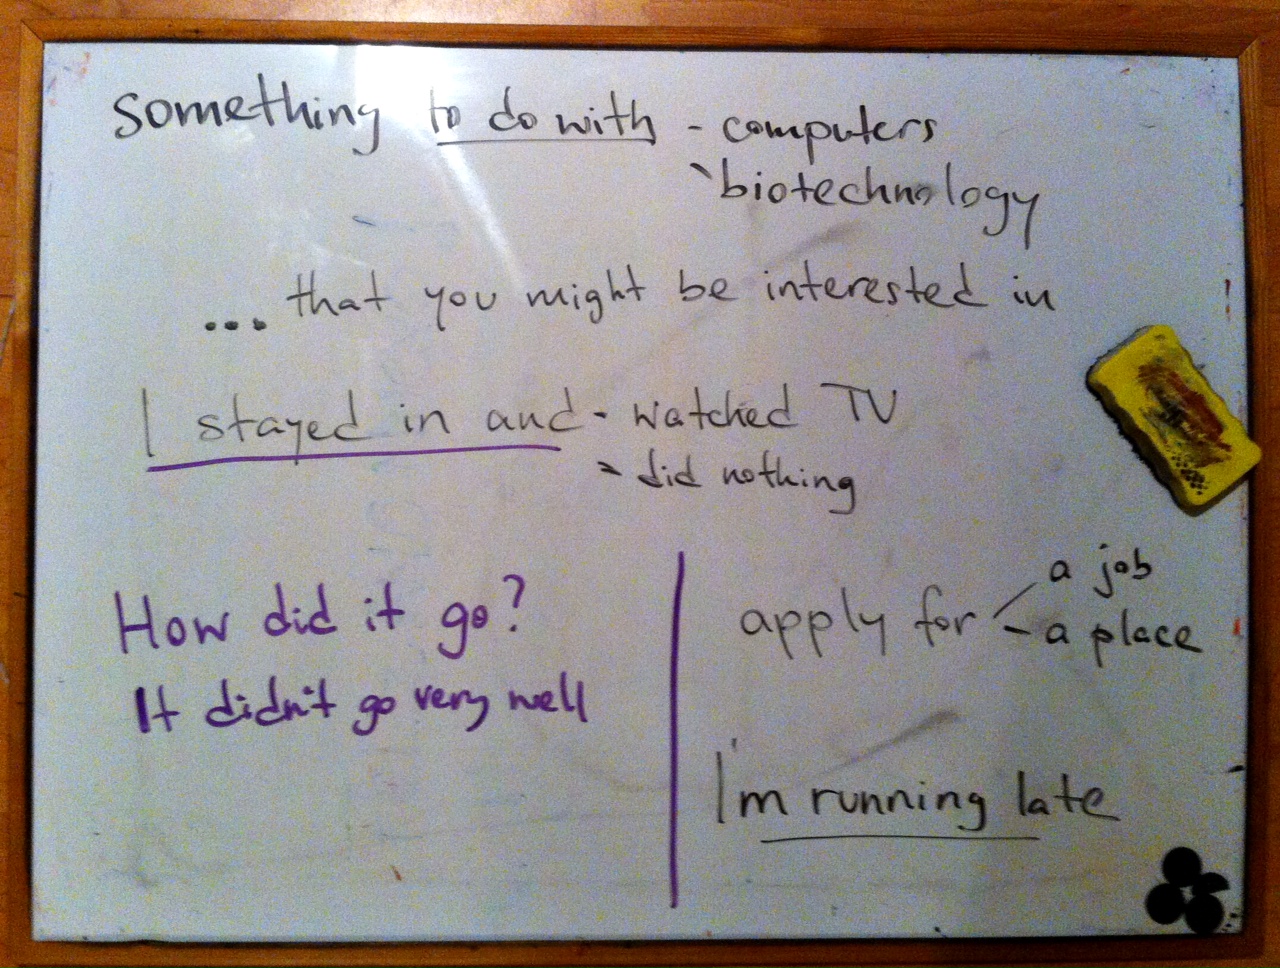 something to do with - computers
- biotechnology
... that you might be interested in
I stayed in and - watched TV
- did nothing
How did it go?
It didn't go very well
apply for - a job
- a place
I'm running late